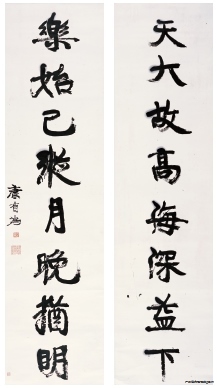 天大故高海深益下
樂始已月晚猶明
康有為